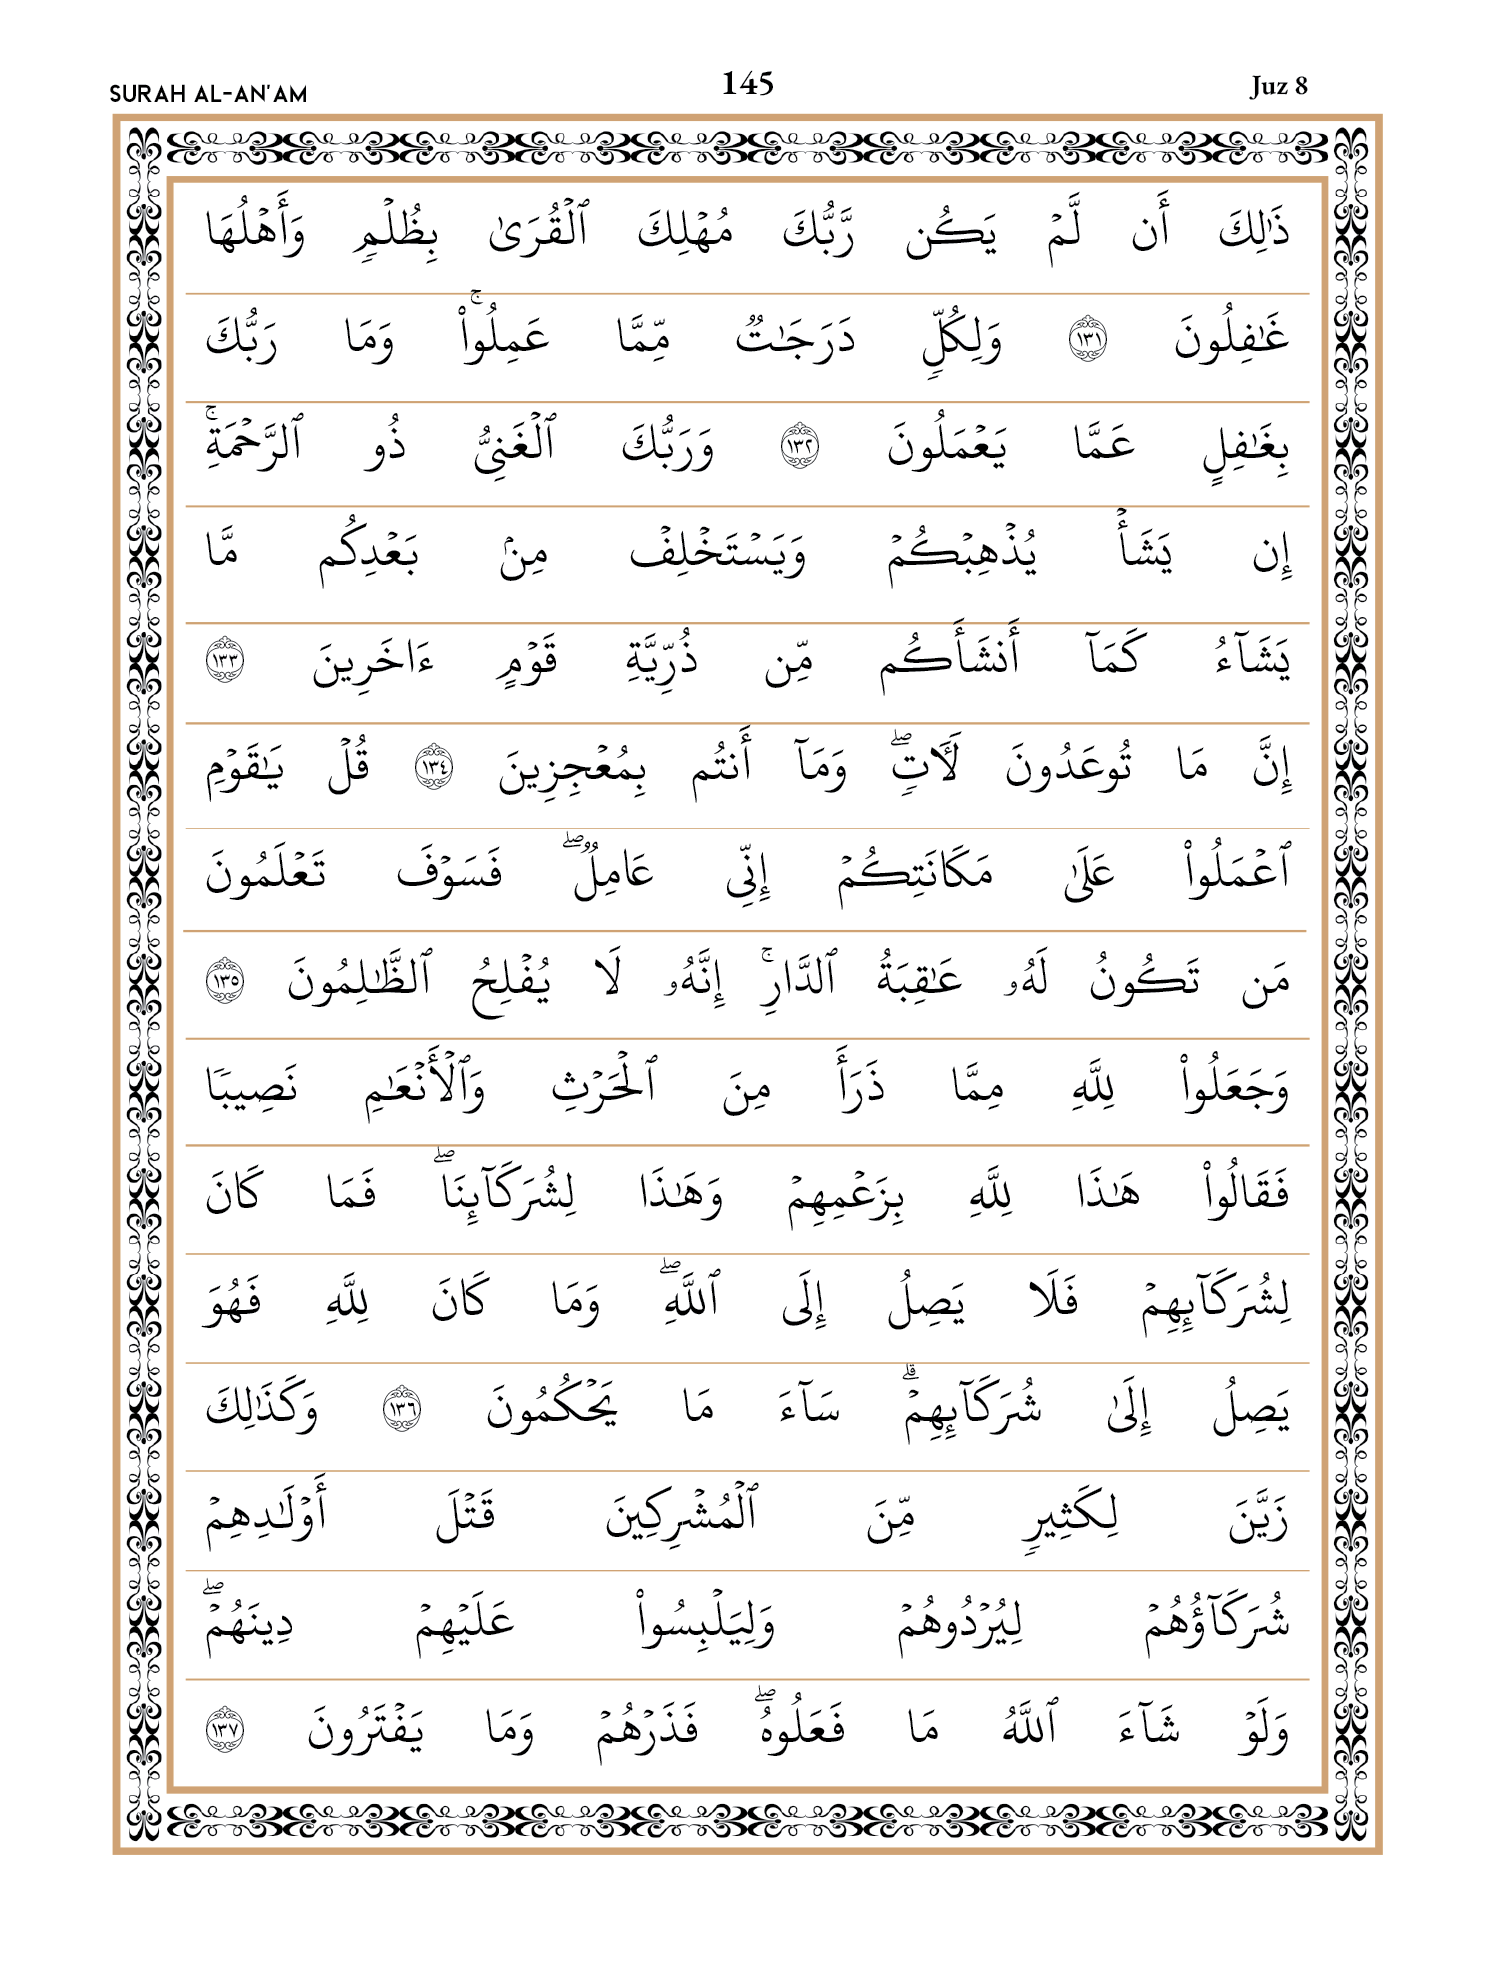 SURAH AL-AN'AM 145 Juz 8
ذَٰلِكَ أَن لَّمۡ يَكُن رَّبُّكَ مُهۡلِكَ ٱلۡقُرَىٰ بِظُلۡمٖ وَأَهۡلُهَا
غَٰفِلُونَ ١٣١ وَلِكُلّٖ دَرَجَٰتٞ مِّمَّا عَمِلُواْۚ وَمَا رَبُّكَ
بِغَٰفِلٍ عَمَّا يَعۡمَلُونَ ١٣٢ وَرَبُّكَ ٱلۡغَنِيُّ ذُو ٱلرَّحۡمَةِۚ
إِن يَشَأۡ يُذۡهِبۡكُمۡ وَيَسۡتَخۡلِفۡ مِنۢ بَعۡدِكُم مَّا
يَشَآءُ كَمَآ أَنشَأَكُم مِّن ذُرِّيَّةِ قَوۡمٍ ءَاخَرِينَ ١٣٣
إِنَّ مَا تُوعَدُونَ لَأٓتٖۖ وَمَآ أَنتُم بِمُعۡجِزِينَ ١٣٤ قُلۡ يَٰقَوۡمِ
ٱعۡمَلُواْ عَلَىٰ مَكَانَتِكُمۡ إِنِّي عَامِلٞۖ فَسَوۡفَ تَعۡلَمُونَ
مَن تَكُونُ لَهُۥ عَٰقِبَةُ ٱلدَّارِۚ إِنَّهُۥ لَا يُفۡلِحُ ٱلظَّٰلِمُونَ ١٣٥
وَجَعَلُواْ لِلَّهِ مِمَّا ذَرَأَ مِنَ ٱلۡحَرۡثِ وَٱلۡأَنۡعَٰمِ نَصِيبٗا
فَقَالُواْ هَٰذَا لِلَّهِ بِزَعۡمِهِمۡ وَهَٰذَا لِشُرَكَآئِنَاۖ فَمَا كَانَ
لِشُرَكَآئِهِمۡ فَلَا يَصِلُ إِلَى ٱللَّهِۖ وَمَا كَانَ لِلَّهِ فَهُوَ
يَصِلُ إِلَىٰ شُرَكَآئِهِمۡۗ سَآءَ مَا يَحۡكُمُونَ ١٣٦ وَكَذَٰلِكَ
زَيَّنَ لِكَثِيرٖ مِّنَ ٱلۡمُشۡرِكِينَ قَتۡلَ أَوۡلَٰدِهِمۡ
شُرَكَآؤُهُمۡ لِيُرۡدُوهُمۡ وَلِيَلۡبِسُواْ عَلَيۡهِمۡ دِينَهُمۡۖ
وَلَوۡ شَآءَ ٱللَّهُ مَا فَعَلُوهُۖ فَذَرۡهُمۡ وَمَا يَفۡتَرُونَ ١٣٧